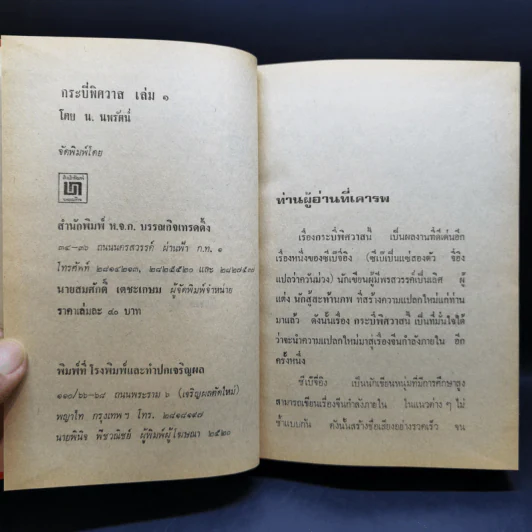 กระบี่พิศวาส เล่ม ๑
โดย น. นพรัตน์
จัดพิมพ์โดย
สำนักพิมพ์ ห.จ.ก. บรรณกิจเทรดดิ้ง
๓๔-๓๖ ถนนนครสวรรค์ ผ่านฟ้า ก.ท. ๑
โทรศัพท์ ๒๘๑๔๒๑๓, ๒๘๒๕๕๒๐ และ ๒๘๒๗๕๓๗
นายสมศักดิ์ เตชะเกษม ผู้จัดพิมพ์จำหน่าย
ราคาเล่มละ ๔๐ บาท
พิมพ์ที่ โรงพิมพ์และทำปกเจริญผล
๑๑๐/๖๖-๖๘ ถนนพระราม ๖ (เจริญผลตัดใหม่)
พญาไท กรุงเทพฯ โทร.
นายพินิจ พีชวณิชย์ ผู้พิมพ์ผู้โฆษณา ๒๕๒๐
ท่านผู้อ่านที่เคารพ
เรื่องกระบี่พิศวาสนี้ เป็นผลงานที่ดีเด่นอีก
เรื่องหนึ่งของซีเบ๊จี้ง (ซีเบ๊เป็นแซ่สองตัว จี้ง
แปลว่าควันม่วง) นักเขียนผู้มีพรสวรรค์เป็นเลิศ ผู้
แต่ง นักสู้สะท้านภพ ที่สร้างความแปลกใหม่แก่ท่าน
มาแล้ว ดังนั้นเรื่อง กระบี่พิศวาสนี้ เป็นที่มั่นใจได้
ว่าจะนำความแปลกใหม่มาสู่เรื่องจีนกำลังภายใน อีก
ครั้งหนึ่ง
เป็นนักเขียนหนุ่มที่มีการศึกษาสูง
สามารถเขียนเรื่องจีนกำลังภายใน ในแนวต่าง ๆ ไม่
ซ้ำแบบกัน ดังนั้นสร้างชื่อเสียงอย่างรวดเร็ว จน